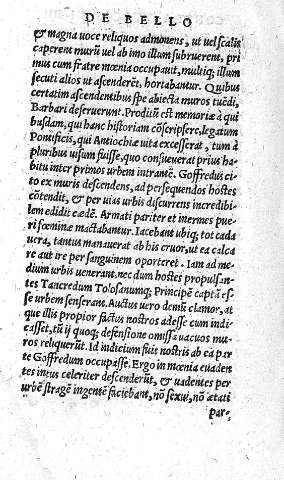 DE BELLO
& magna uoce reliquos admonens, ut uel scalis
caperent murũ uel ab imo illum subruerent, pri
mus cum fratre mœnia occupauit, multiq; illum
secuti alios ut ascenderẽt, hortabantur. Quibus
certatim ascendentibus spe abiecta muros tuẽdi,
Barbari deseruerunt. Proditũ est memoriæ à qui
busdam, qui hanc historiam cõscripsere, legatum
Pontificis, qui Antiochiæ uita excesserat, tum à
pluribus uisum fuisse, quo consueuerat prius ha-
bitu inter primos urbem intrantẽ. Goffredus ci-
to ex muris descendens, ad persequendos hostes
cõtendit, & per uias urbis discurrens incredibi-
lem edidit cædẽ. Armati pariter et inermes pue-
ri fœminæ mactabantur. Iacebant ubiq; tot cada
uera, tantus manauerat ab his cruor, ut ea calca
re aut ire per sanguinem oporteret. Iam ad me-
dium urbis uenerant, nec dum hostes propulsan-
tes Tancredum Tolosanumq; Principẽ captã es-
se urbem senserant. Auctus uero demũ clamor, at
que illis propior factus nostros adesse cum indi-
casset, tũ ij quoq; defensione omissa uacuos mu-
ros reliquerũt. Id indicium fuit nostris ab ea par
te Goffredum occupasse. Ergo in mœnia euaden
tes intus celeriter descenderũt, & uadentes per
urbẽ stragẽ ingentẽ faciebant, nõ sexui, nõ ætati
par-